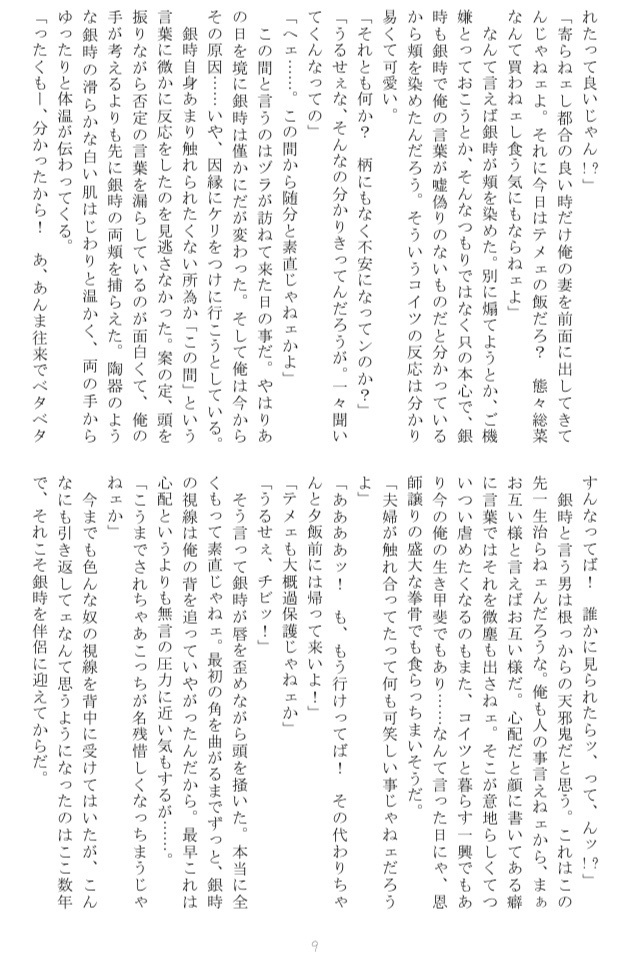 れたって良いじゃん!?」
「寄らねェし都合の良い時だけ俺の妻を前面に出してきて
んじゃねェよ。それに今日はテメェの飯だろ？　態々総菜
なんて買わねェし食う気にもならねェよ」
　なんて言えば銀時が頬を染めた。別に煽てようとか、ご機
嫌とっておこうとか、そんなつもりではなく只の本心で、銀
時も銀時で俺の言葉が嘘偽りのないものだと分かっている
から頬を染めたんだろう。そういうコイツの反応は分かり
易くて可愛い。
「それとも何か？　柄にもなく不安になってンのか？」
「うるせぇな、そんなの分かりきってんだろうが。一々聞い
てくんなっての」
「ヘェ……。この間から随分と素直じゃねェかよ」
　この間と言うのはヅラが訪ねて来た日の事だ。やはりあ
の日を境に銀時は僅かにだが変わった。そして俺は今から
その原因……いや、因縁にケリをつけに行こうとしている。
　銀時自身あまり触れられたくない所為か「この間」という
言葉に微かに反応をしたのを見逃さなかった。案の定、頭を
振りながら否定の言葉を漏らしているのが面白くて、俺の
手が考えるよりも先に銀時の両頬を捕らえた。陶器のよう
な銀時の滑らかな白い肌はじわりと温かく、両の手から
ゆったりと体温が伝わってくる。
「ったくもー、分かったから！　あ、あんま往来でベタベタ
すんなってば！　誰かに見られたらッ、って、んッ!?」
　銀時と言う男は根っからの天邪鬼だと思う。これはこの
先一生治らねェんだろうな。俺も人の事言えねェから、まぁ
お互い様と言えばお互い様だ。心配だと顔に書いてある癖
に言葉ではそれを微塵も出さねェ。そこが意地らしくてつ
いつい虐めたくなるのもまた、コイツと暮らす一興でもあ
り今の俺の生き甲斐でもあり……なんて言った日にゃ、恩
師譲りの盛大な拳骨でも食らっちまいそうだ。
「夫婦が触れ合ってたって何も可笑しい事じゃねェだろう
よ」
「ああああッ！　も、もう行けってば！　その代わりちゃ
んと夕飯前には帰って来いよ！」
「テメェも大概過保護じゃねェか」
「うるせぇ、チビッ！」
　そう言って銀時が唇を歪めながら頭を掻いた。本当に全
くもって素直じゃねェ。最初の角を曲がるまでずっと、銀時
の視線は俺の背を追っていやがったんだから。最早これは
心配というよりも無言の圧力に近い気もするが……。
「こうまでされちゃあこっちが名残惜しくなっちまうじゃ
ねェか」
　今までも色んな奴の視線を背中に受けてはいたが、こん
なにも引き返してェなんて思うようになったのはここ数年
で、それこそ銀時を伴侶に迎えてからだ。
9